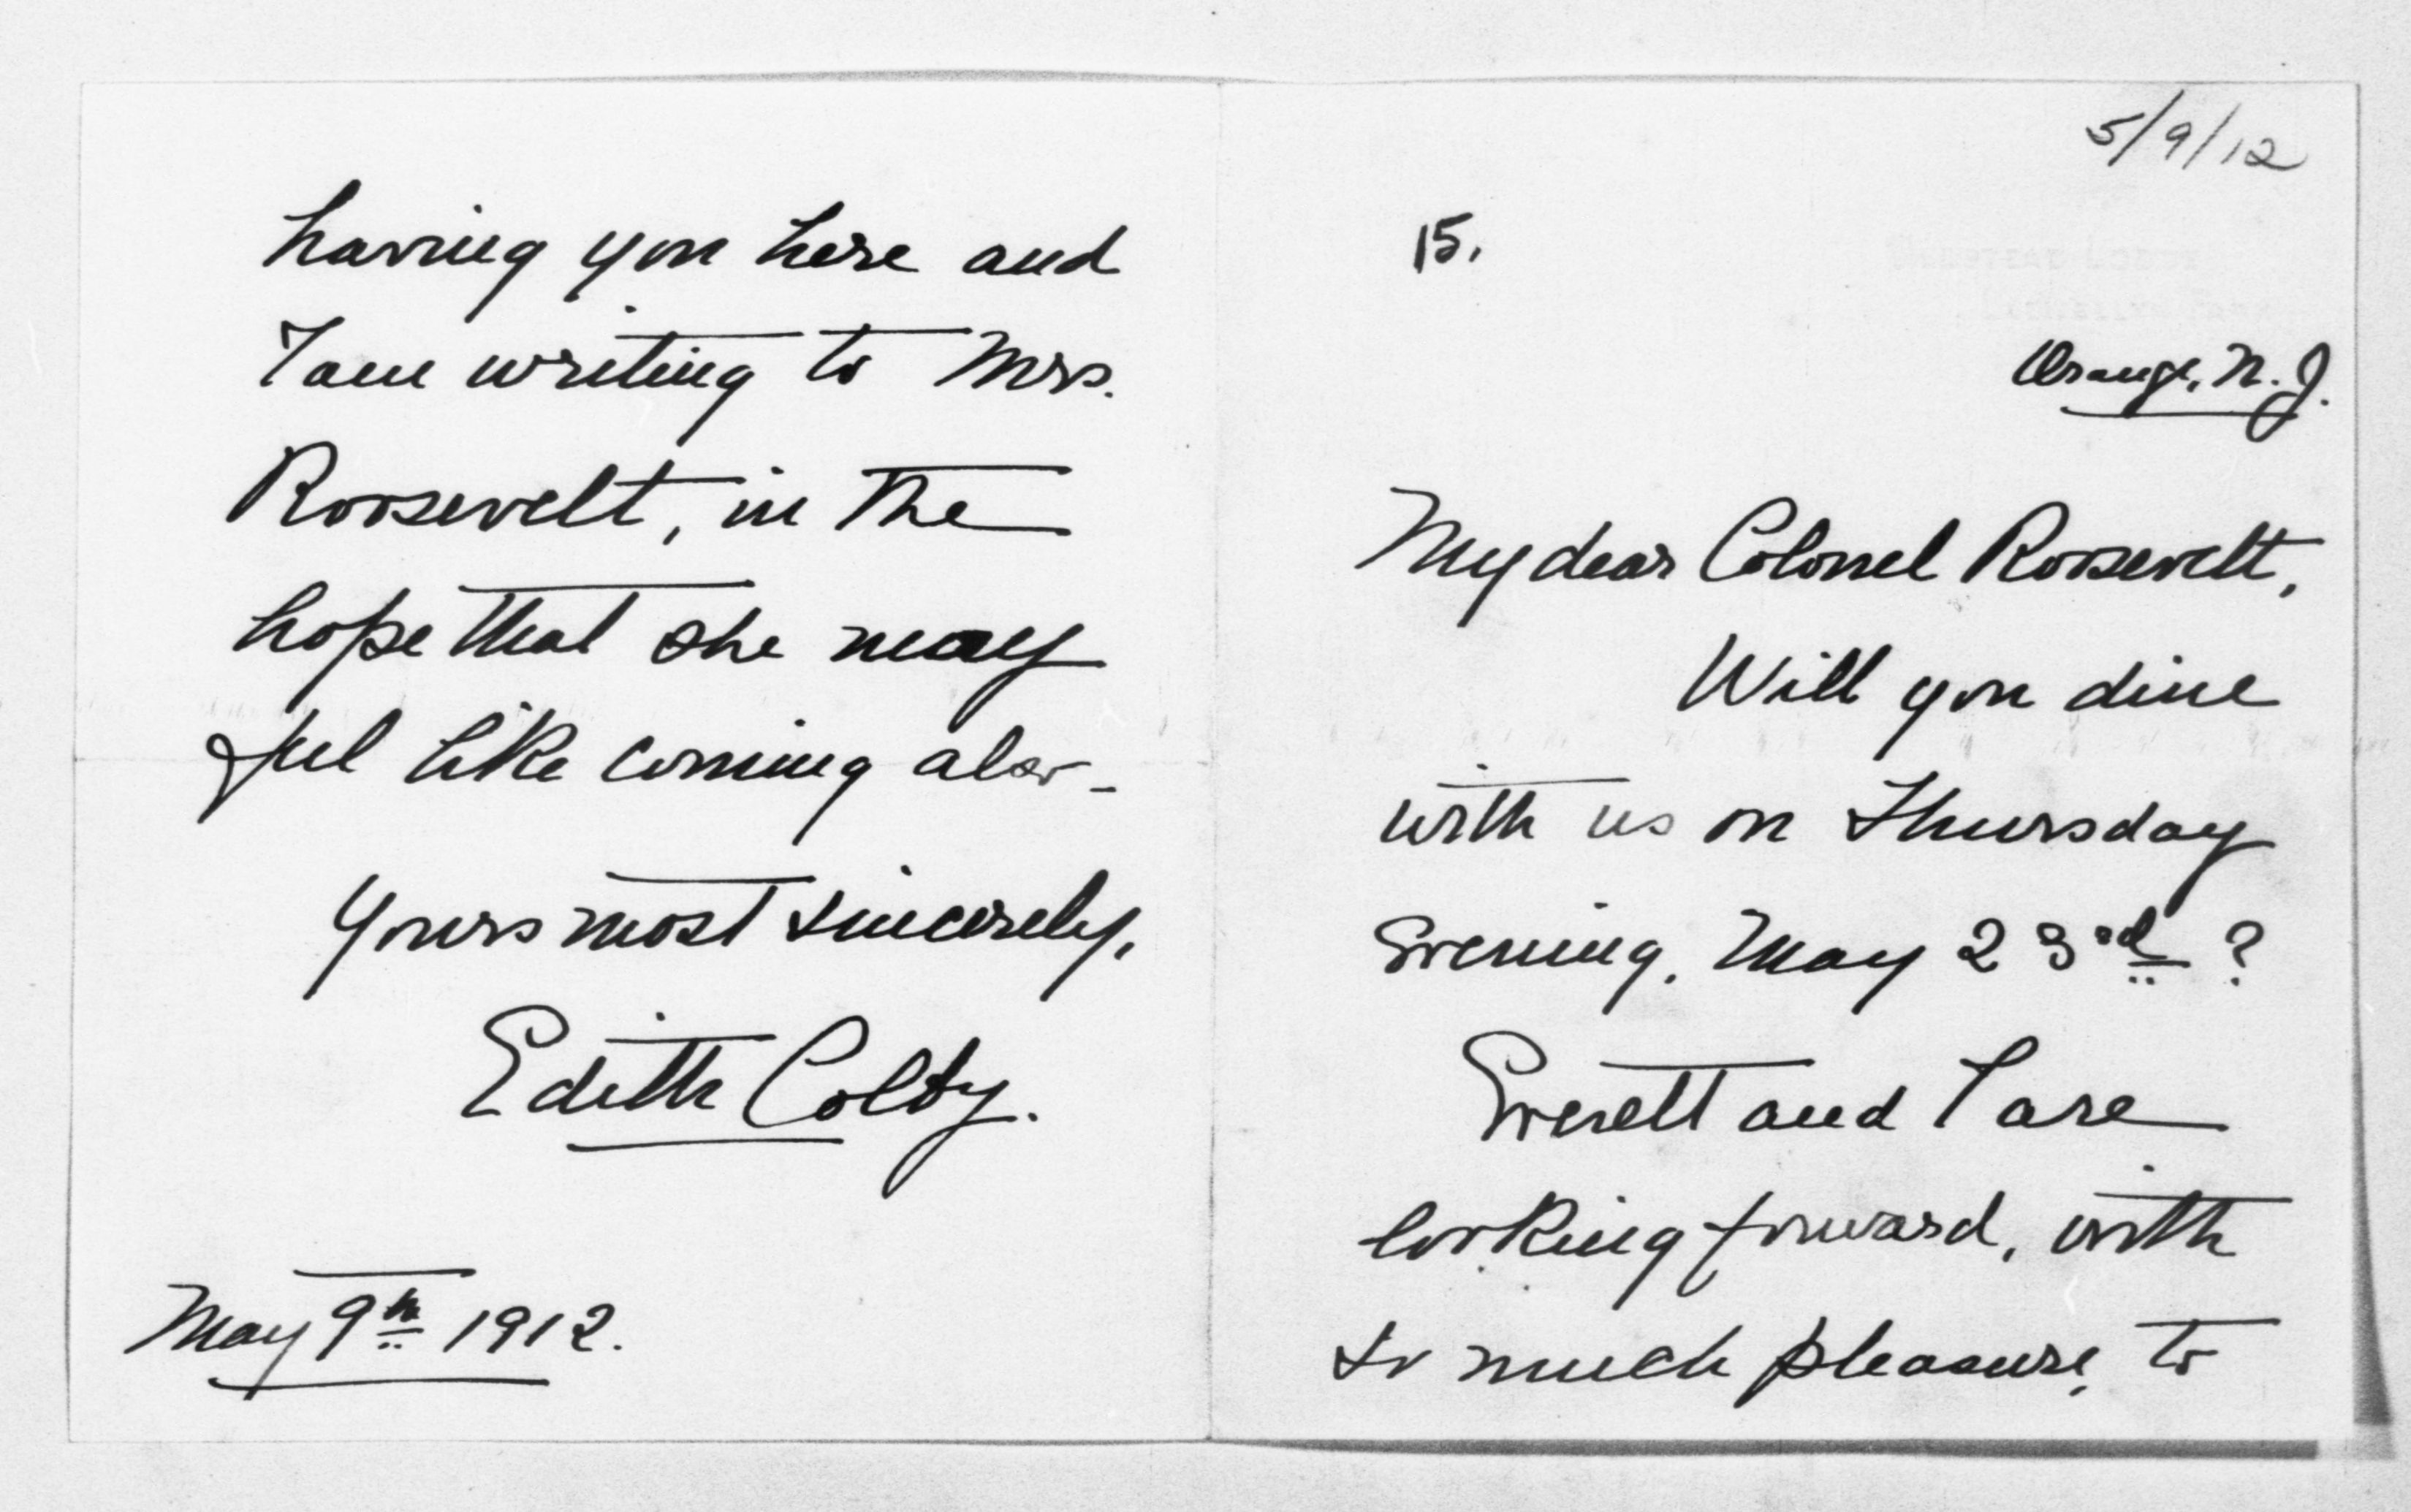 5/9/12
15.
Orange, N.J.
My dear Colonel Roosevelt,
Will you dine
with us on Thursday
Evening, May 23rd ?
Everett and I are
looking forward, with
so much pleasure, to
having you here and
I am writing to Mrs.
Roosevelt, in the
hope that she may
feel like coming also -
Yours most sincerely,
Edith Colby.
May 9th 1912.